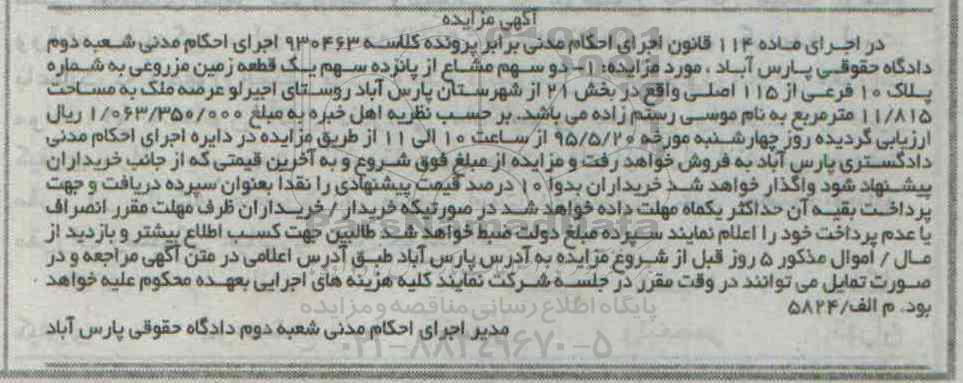 آگهی مزایده
در اجرای ماده ۱۱۴ قانون اجرای احکام مدنی برابر پرونده کلاسه ۹۳۰۴۶۳ اجرای احکام مدنی شعبه دوم
دادگاه حقوقی پارس آباد ، مورد مزایده: ۱- دو سهم مشاع از پانزده سهم یک قطعه زمین مزروعی به شماره
پلاک ۱۰ فرعی از ۱۱۵ اصلی واقع در بخش ۲۱ از شهرستان پارس آباد روستای اجیرلو عرصه ملک به مساحت
۱۱/۸۱۵ مترمربع به نام موسی رستم زاده می باشد. بر حسب نظریه اهل خبره به مبلغ ۱/۰۶۳/۳۵۰/۰۰۰ ریال
ارزیابی گردیده روز چهارشنبه مورخه ۹۵/۵/۲۰ از ساعت ۱۰ الی ۱۱ از طریق مزایده در دایره اجرای احکام مدنی
دادگستری پارس آباد به فروش خواهد رفت و مزایده از مبلغ فوق شروع و به آخرین قیمتی که از جانب خریداران
پیشنهاد شود واگذار خواهد شد خریداران بدوا ۱۰ درصد قیمت پیشنهادی را نقدا بعنوان سپرده دریافت و جهت
پرداخت بقیه آن حداکثر یکماه مهلت داده خواهد شد در صورتیکه خریدار / خریداران ظرف مهلت مقرر انصراف
یا عدم پرداخت خود را اعلام نمایند سپرده منبع دولت ضبط خواهد شد. طالبین جهت کسب اطلاع بیشتر و بازدید از
مال / اموال مذکور ۵ روز قبل از شروع مزایده به آدرس پارس آباد طبق آدرس اعلامی در متن آگهی مراجعه و در
صورت تمایل می توانند در وقت مقرر در جلسه شرکت نمایند کلیه هزینه های اجرایی بعهده محکوم علیه خواهد
بود. م الف/۵۸۲۴
پایگاه اطلاع رسانی مناقصه و مزایده
مدیر اجرای احکام مدنی شعبه دوم دادگاه حقوقی پارس آباد
۰۲۱-۸۸۳۴۹۶۷۰-۵